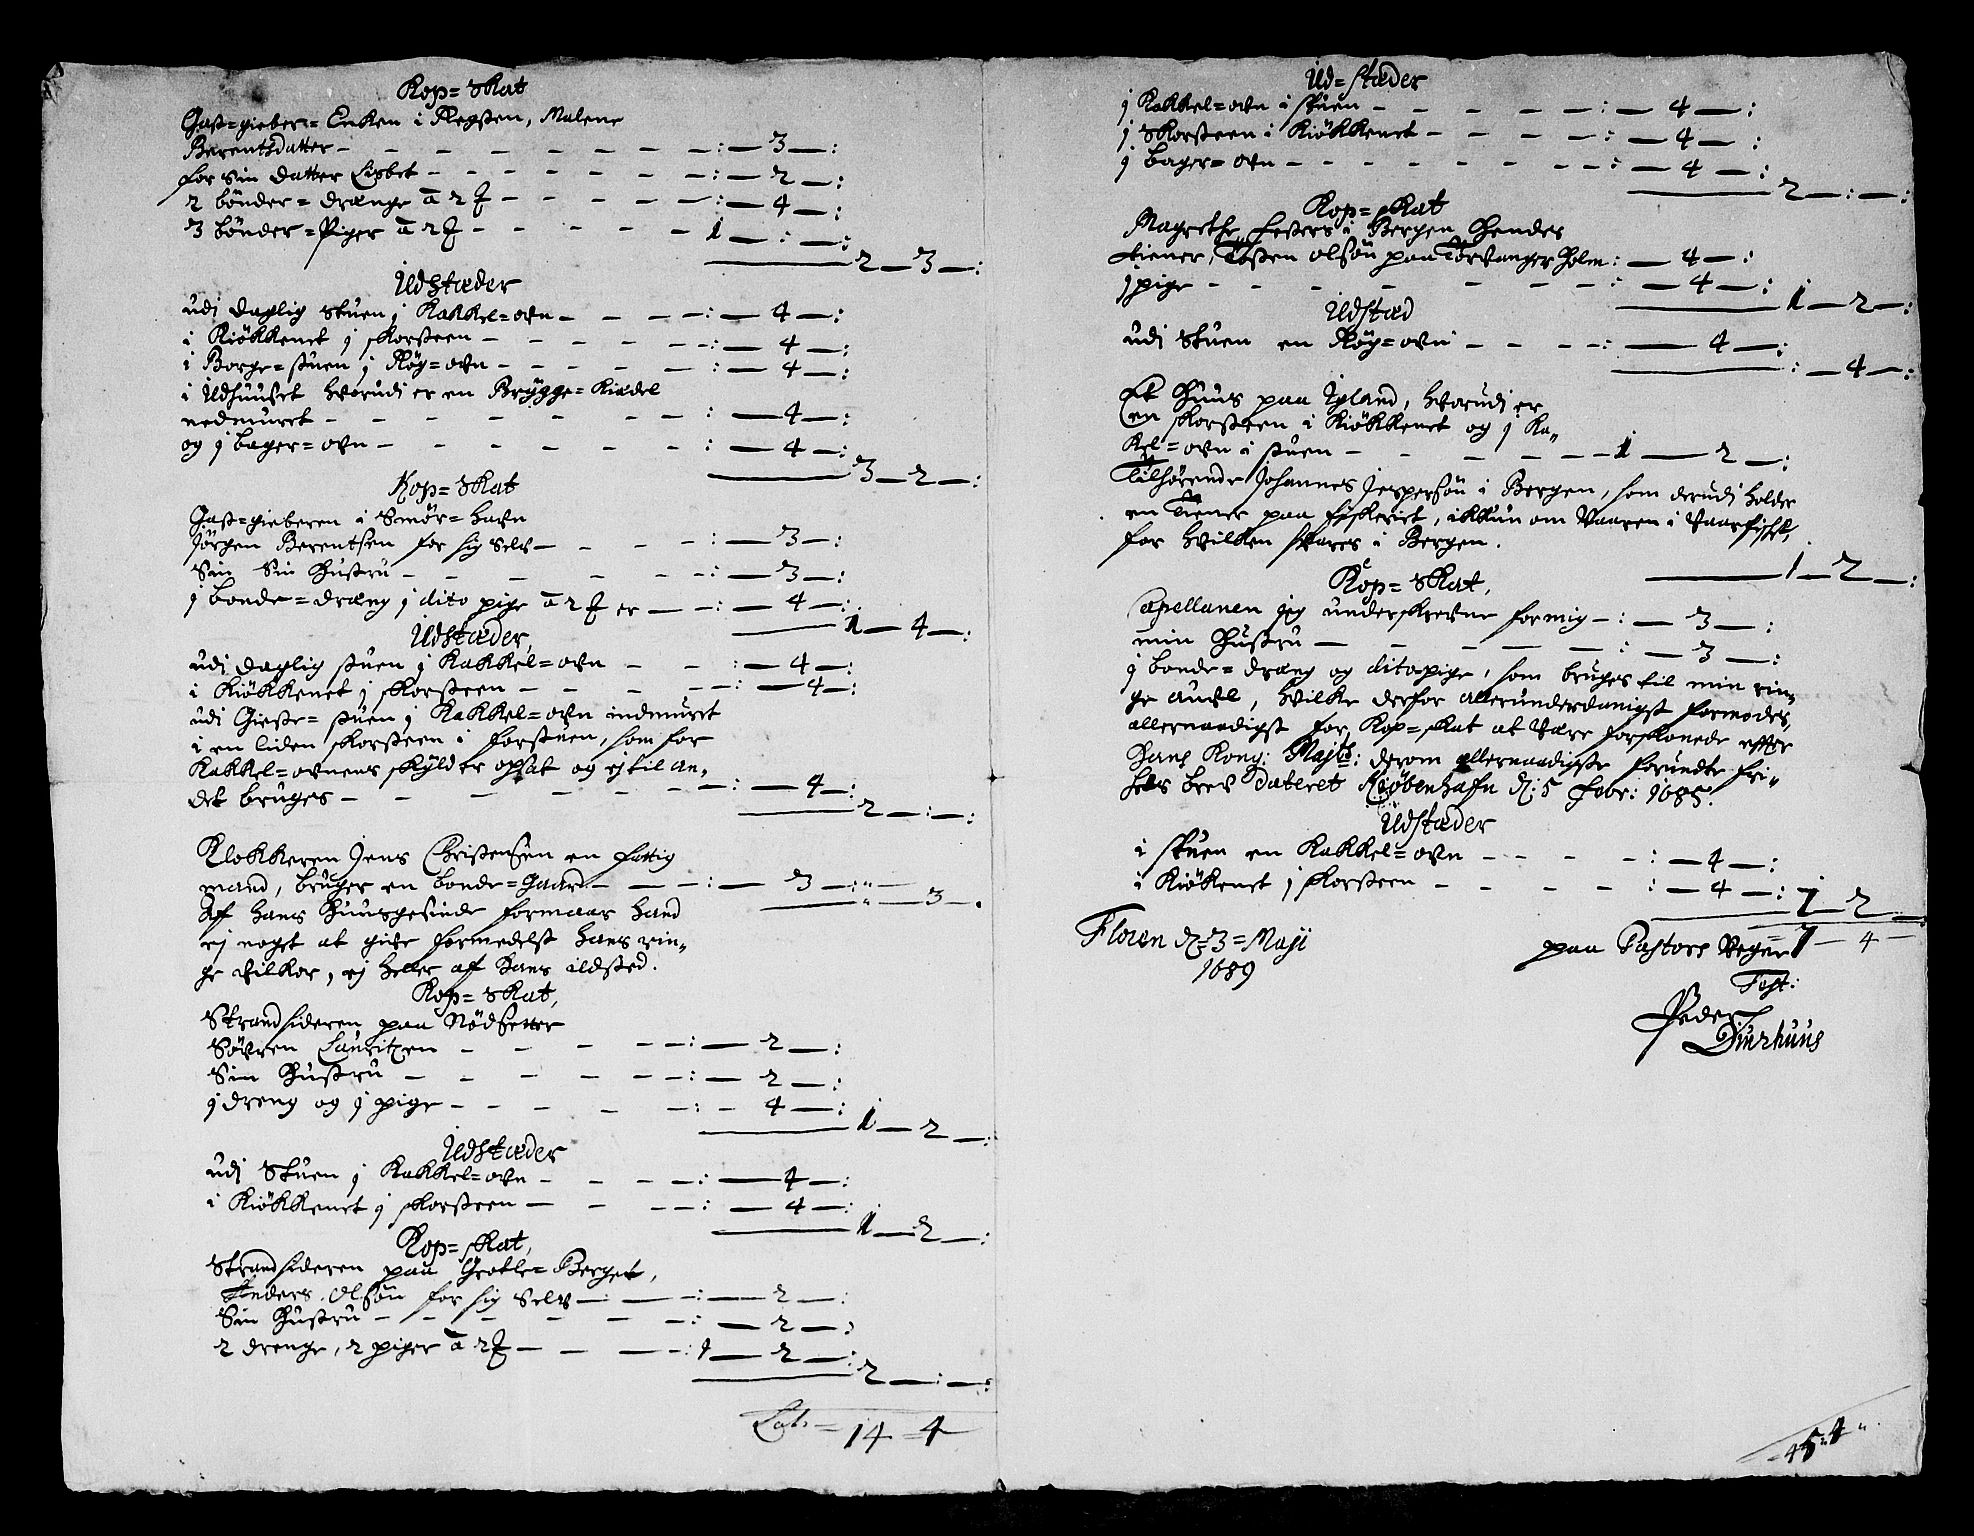 Kop=Skat
Gast=gieber=Enken i Regsten, Malene
Berentsdatter - - - - - - - - -: — 3 —:
for Sin datter Lisbet - - - - - - -: — 2 —:
2 bönder=drænge à 2 ƶ - - - - - -: — 4 —:
3 bönder=Piger à 2 ƶ - - - - - 1 — : —:
2 — 3 —:
Ildstæder
udi daglig Stuen j Kakkel=ovn - - - -: — 4 —:
i Kiökkenet j skorsteen - - - - - -: — 4 —:
i Borge=stuen j Röy=ovn - - - - - -: — 4 —:
i Ildhuuset hvorudi er en Brÿgge=Kiedel
nedmuret - - - - - - - -: — 4 —:
og j bager=ovn - - - - - - -: — 4 —:
3 — 2 —:
Kop=Skat
Gast=gieberen i Smör=havn
Jörgen Berentsen for sig Selv - - - -: — 3 —:
Sin Hustru - - - - - - -: — 3 —:
j bonde=dræng j dito pige à 2 ƶ er - -: — 4 —:
1 — 4 —:
Ildstæder,
udi daglig stuen j Kakkel=ovn - - -: — 4 —:
i Kiökkenet j skorsteen - - - - -: — 4 —:
udi Gieste=stuen j Kakkel=ovn indmuret
i en liden skorsteen i forstuen, som for
Kakkel=ovnens skÿld er opsat og ej til an,,
det bruges - - - - - - -: — 4 —:
2 — : —:
Klokkeren Jens Christensen en fattig
mand, bruger en bonde=Gaard - - -: — 3 —:
— 3 —.
Af hans Huusgesinde formaar hand
ej noget at give formedelst hans rin,,
ge vilkor, ej heller af hans ildsted.
Kop=Skat,
Strandsideren paa Nödsetter
Sövren Lauritzen - - - - -: — 2 —:
Sin Hustru - - - - - -: — 2 —:
j dreng og j pige - - - - -: - 4 —:
1 — 2 —:
Ildstæder
udi Stuen j Kakkel=ovn - - - -: — 4 —:
i Kiökkenet j skorsteen - - - -: — 4 —:
1 — 2 —:
Kop=skat,
Strandsideren paa Grotle=Berget,
Anders Olsön for sig Selv - - -: — 2 —:
Sin Hustru - - - - - - -: — 2 —:
2 drenge, 2 piger à 2 ƶ - - - -: 1 — 2 —:
2 — : —:
Lat. = 14 = 4
Ild=stæder
j Kakkel=ovn i stuen - - - - - -: — 4 —:
j skorsteen i Kiökkenet - - - - -: — 4 —:
j bager=ovn - - - - - - - -: — 4 —:
2 — : —:
Kop=skat
Magrethe Festers i Bergen Hendes
tiener, Tosten olsön paa Torvanger holm: — 4 —:
j pige - - - - - - - -: — 4 —:
1 — 2 —:
Ildstæd
udi Stuen en Röy=ovn - - - -: — 4 —:
: — 4 —:
Et Huus paa Ÿtland, hvorudi er
en skorsteen i Kiökkenet og j Ka,,
kel=ovn i stuen - - - - - - 1 — 2 —:
Tilhörende Johannes Jespersön i Bergen, som derudi holder
en Tiener paa fiskeriet, ikkun om Vaaren i Vaarfisket,
for hvilken svares i Bergen.
1 — 2 —:
Kop=Skat,
Capellanen jeg underskrevne for mig - : — 3 —:
min Hustru - - - - - -: — 3 —:
j bonde=dræng og ditopige, som bruges til min rin,,
ge auel, hvilke derfor allerunderdanigst formodes,
allernaadigst for Kop=skat at være forskonede effter
Hans Kong: Majts: derom allernaadigste forundte fri,,
heds brev Dateret Kiöbenhafn d: 5 Febr: 1685.
Ildstæder
i stuen en Kakkel=ovn - - - -: — 4 —:
i Kiökenet j skorsteen - - - -: — 4 —:
1 — 2 —
Floren d= 3= Maji
1689
paa Pastors Vegne 7 — 4 —
Test:
Peder
Diurhuus
45 " 4 "